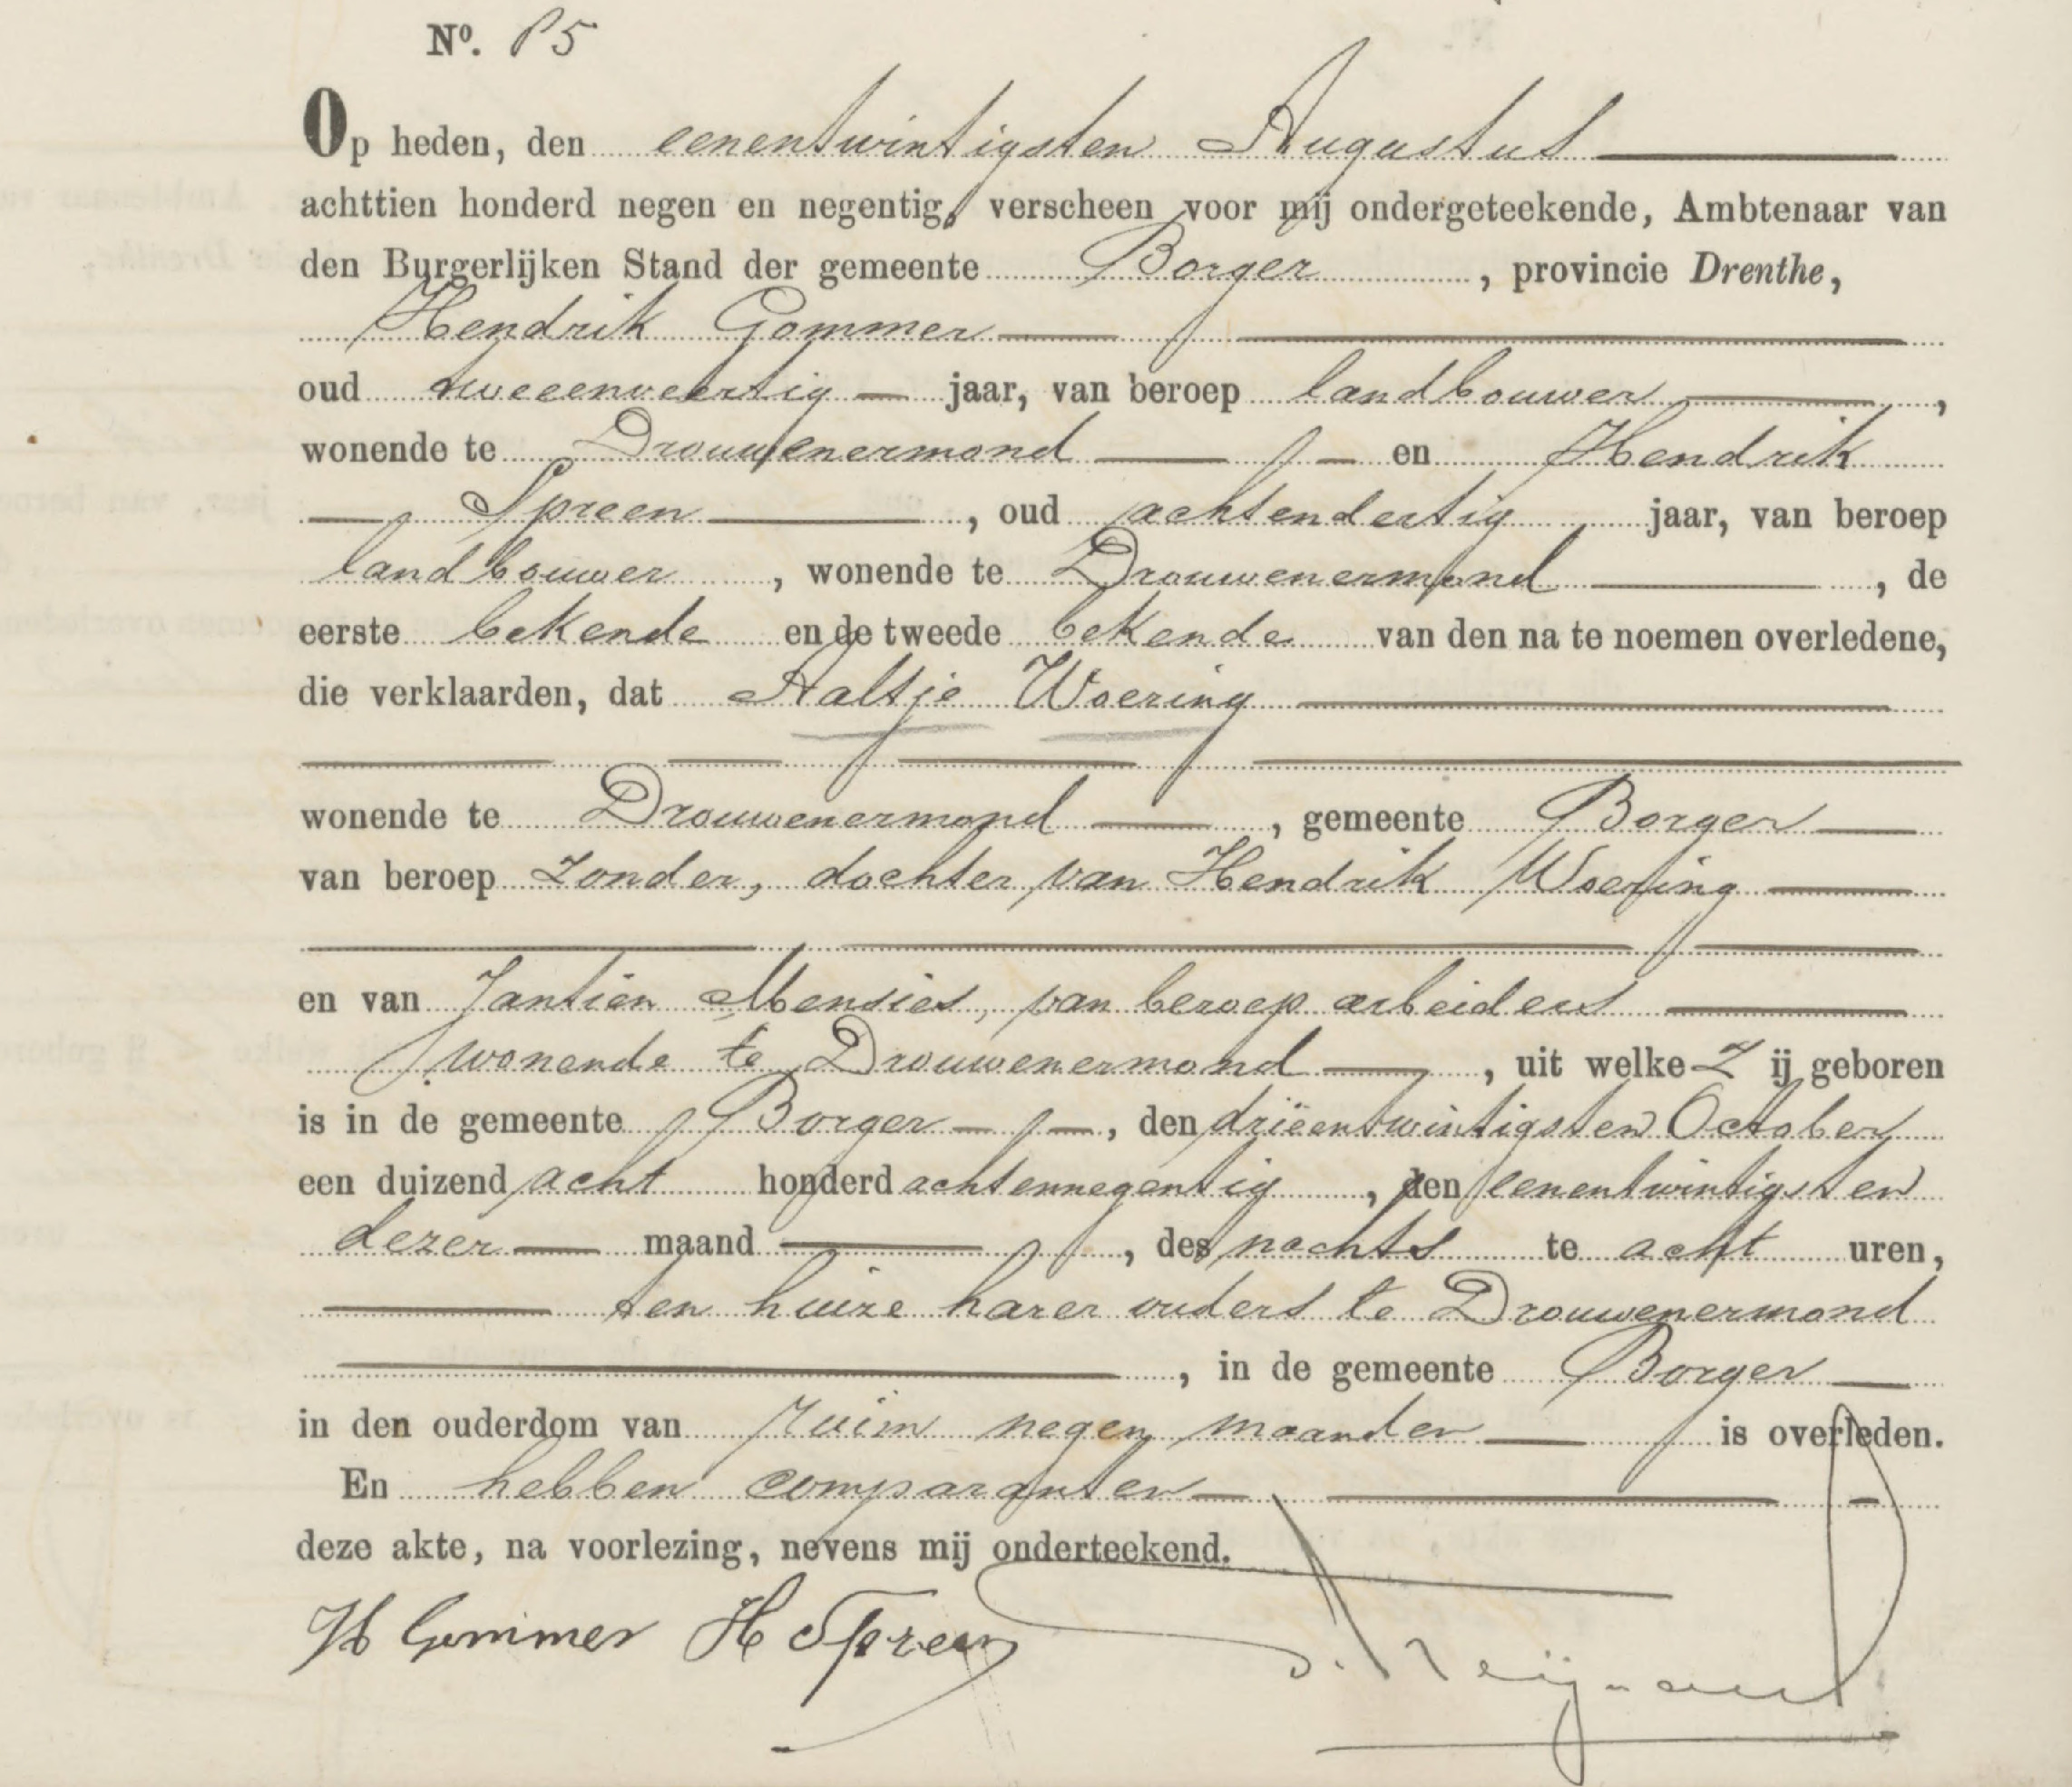 Nº. 85
Op heden, den eenentwintigsten Augustus
achttien honderd negen en negentig, verscheen voor mij ondergeteekende, Ambtenaar van
den Burgerlijken Stand der gemeente Borger, provincie Drenthe,
Hendrik Gommer
oud tweeenveertig jaar, van beroep landbouwer,
wonende te Drouwenermond en Hendrik
Spreen, oud achtendertig jaar, van beroep
landbouwer, wonende te Drouwenermond, de
eerste bekende en de tweede bekende van den na te noemen overledene,
die verklaarden, dat Aaltje Woering
wonende te Drouwenermond, gemeente Borger
van beroep zonder, dochter van Hendrik Woering
en van Jantien Mensies, van beroep arbeiders
wonende te Drouwenermond, uit welke Zij geboren
is in de gemeente Borger, den drieëntwintigsten October
een duizend acht honderd achtennegentig, den eenentwintigsten
dezer maand, des nachts te acht uren,
ten huize harer ouders te Drouwenermond
, in de gemeente Borger
in den ouderdom van ruim negen maanden is overleden.
En hebben comparanten
deze akte, na voorlezing, nevens mij onderteekend.
H Gommer H Spreen